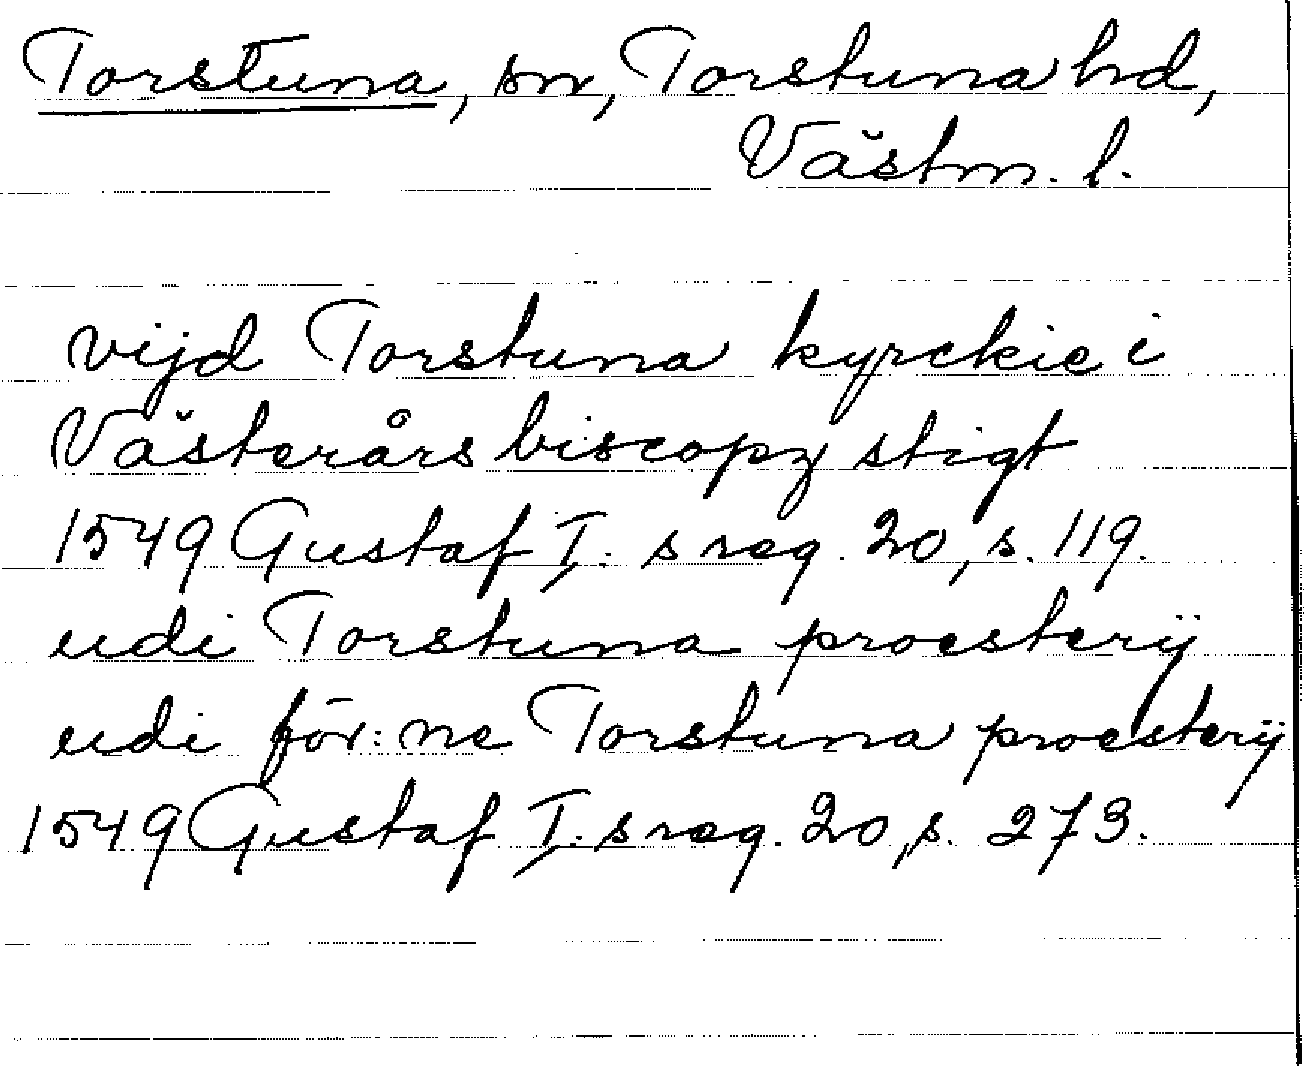 Torstuna, sn, Torstuna hd,
Västm. l.
vijd Torstuna kyrckie i
Västerårs biscopz stigt
1549 Gustaf I:s reg. 20, s. 119.
udi Torstuna proesterij
udi för:ne Torstuna proesterij
1549 Gustaf I:s reg. 20, s. 273.